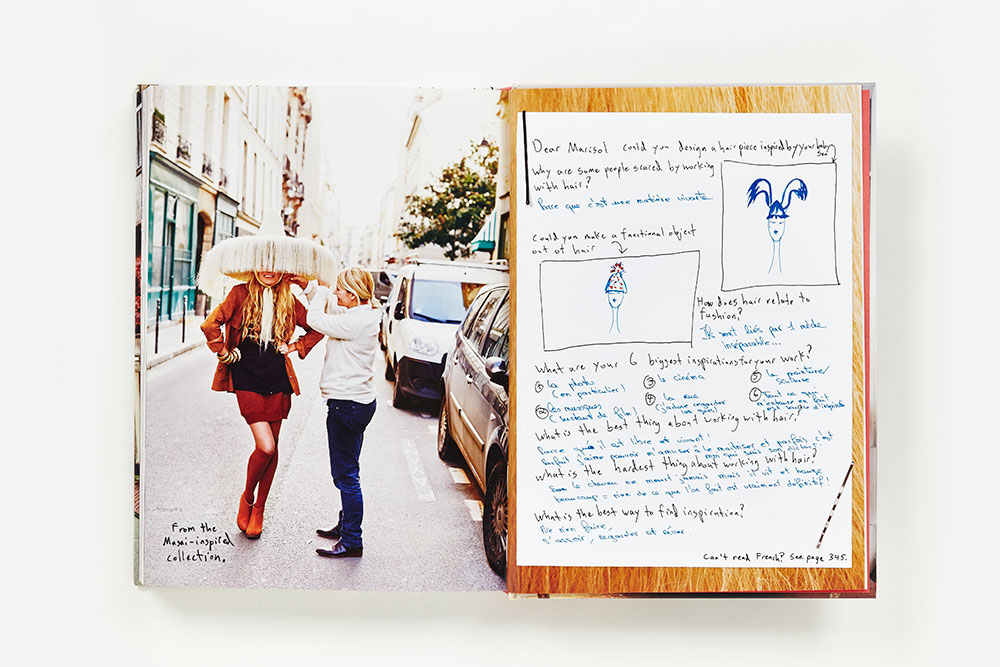 From the
Masai-inspired
collection.
Dear Marisol could you design a hair piece inspired by your baby
Son
Why are some people scared by working
with hair?
Parce que c'est une matière vivante
Could you make a functional object
out of hair
How does hair relate to
fashion?
Ils sont liés par 1
inséparable...
What are your 6 biggest inspirations for your work?
① la photo
(en particulier)
② les musiques
(surtout de film)
③ le cinéma
④ la rue
(j'adore regarder
les gens)
⑤ la peinture/
sculture
⑥ Tout ce qui
m'entoure en fait
What is the best thing about working with hair?
Parce qu'il est libre et vivant!
Parfait j'aime pouvoir m'amuser à le maitriser et parfois c'est
What is the hardest thing about working with hair?
le cheveu ne meurt jamais mais il vit et bouge
beaucoup = rien de ce que l'on fait est vraiment définitif!
What is the best way to find inspiration?
Ne rien faire,
s'assoir, regarder et rêver.
Can't read French? See page 345.